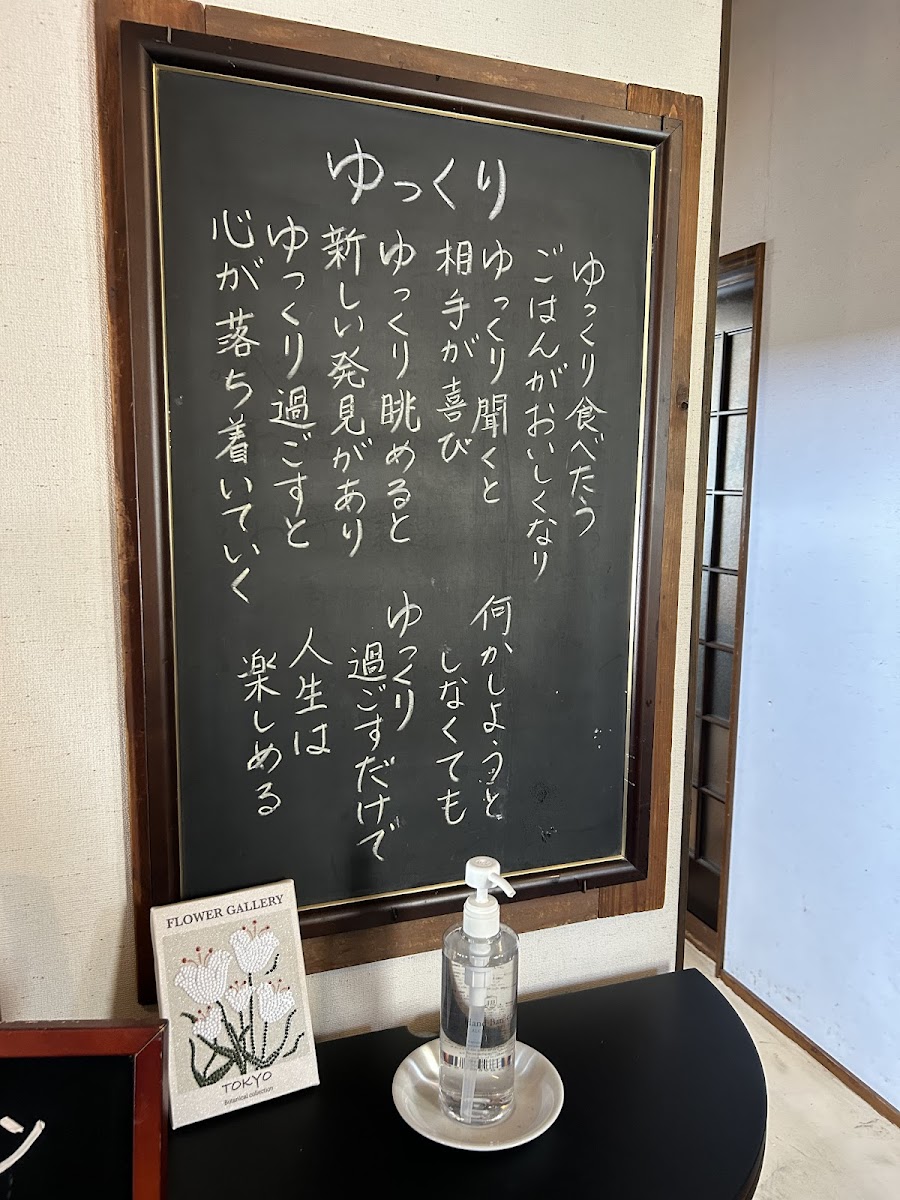 ゆっくり
ゆっくり食べたら
ごはんがおいしくなり
ゆっくり聞くと
相手が喜び
ゆっくり眺めると
新しい発見があり
ゆっくり過ごすと
心が落ち着いていく
何かしようと
しなくても
ゆっくり
過ごすだけで
人生は
楽しめる
FLOWER GALLERY
TOKYO
Botanical collection